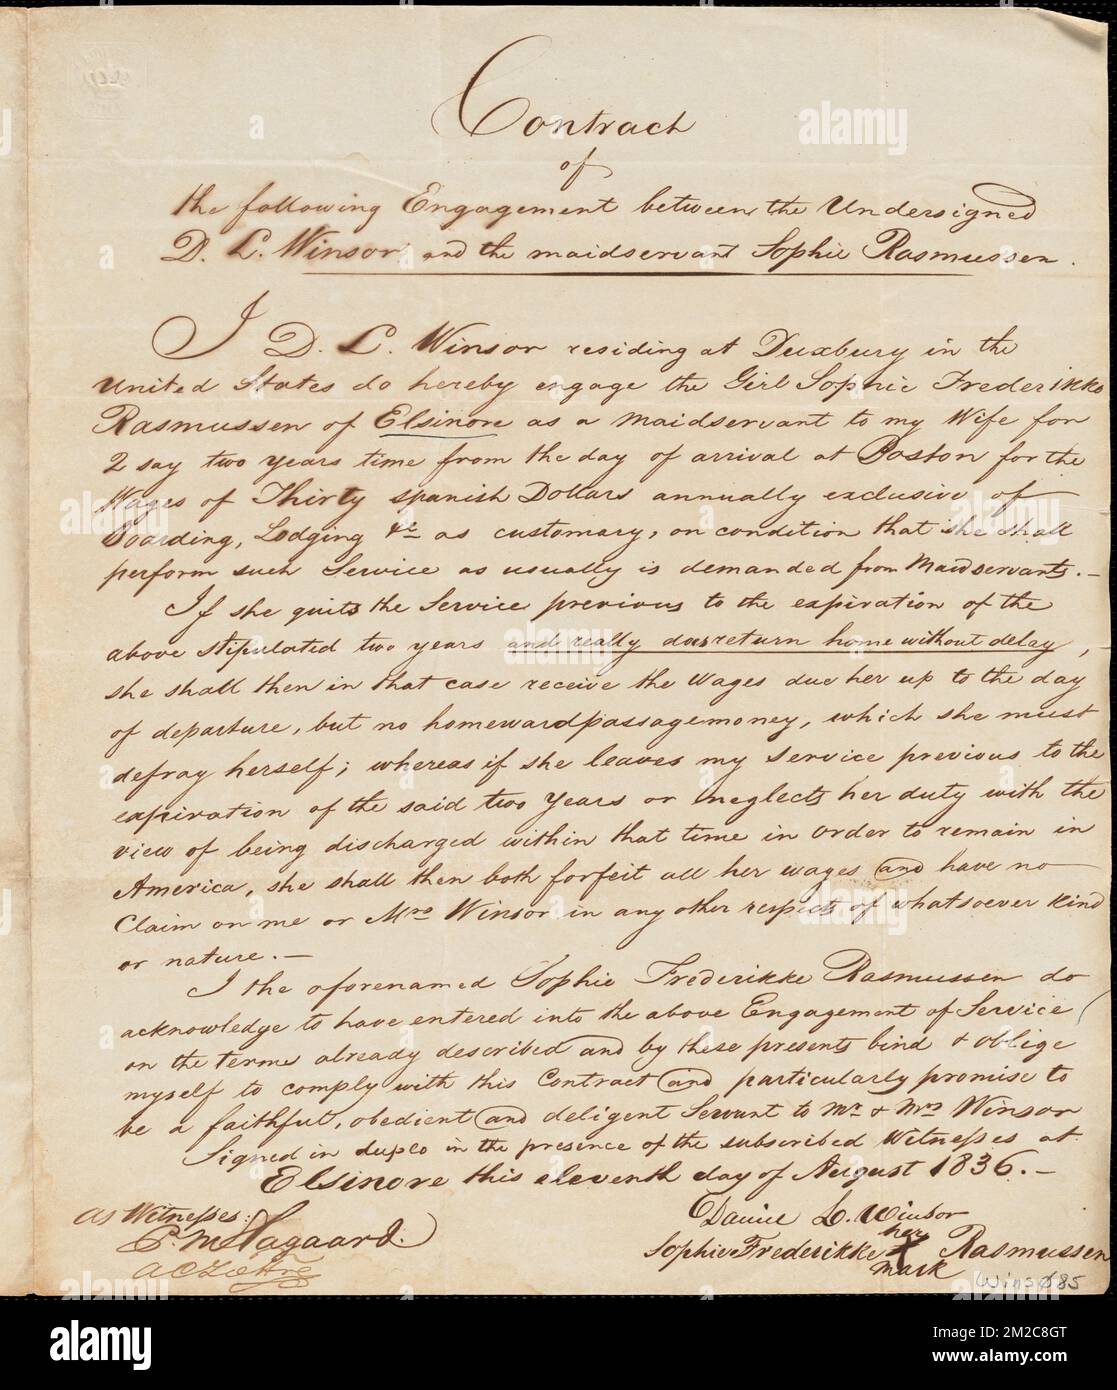 Contract
of
the following Engagement between the Undersigned
D. L. Winsor and the maidservant Sophie Rasmussen.
I D. L. Winsor residing at Duxbury in the
United States do hereby engage the Girl Sophie Frederikke
Rasmussen of Elsinore as a maidservant to my Wife for
2 say two years time from the day of arrival at Boston for the
Wages of Thirty spanish Dollars annually exclusive of
Boarding, Lodging &c as customary, on condition that she shall
perform such Service as usually is demanded from Maidservants.—
If she quits the Service previous to the expiration of the
above stipulated two years and really does return home without delay,
she shall then in that case receive the wages due her up to the day
of departure, but no homewardpassagemoney, which she must
defray herself; whereas if she leaves my service previous to the
expiration of the said two Years or neglects her duty with the
view of being discharged within that time in order to remain in
America, she shall then both forfeit all her wages and have no
Claim on me or Mrs Winsor in any other respects of whatsoever kind
or nature.—
I the aforenamed Sophie Frederikke Rasmussen do
acknowledge to have entered into the above Engagement of Service
on the terms already described and by these presents bind & oblige
myself to comply with this Contract and particularly promise to
be a faithful, obedient and deligent Servant to Mr & Mrs Winsor
Signed in duplo in the presence of the subscribed Witnesses at
Elsinore this eleventh day of August 1836.—
As Witnesses:
Daniel L. Winsor
her
Sophie Frederikke X Rasmussen
mark
Wins 85
alamy
a
alamy
Image ID: 2M2C8GT
www.alamy.com